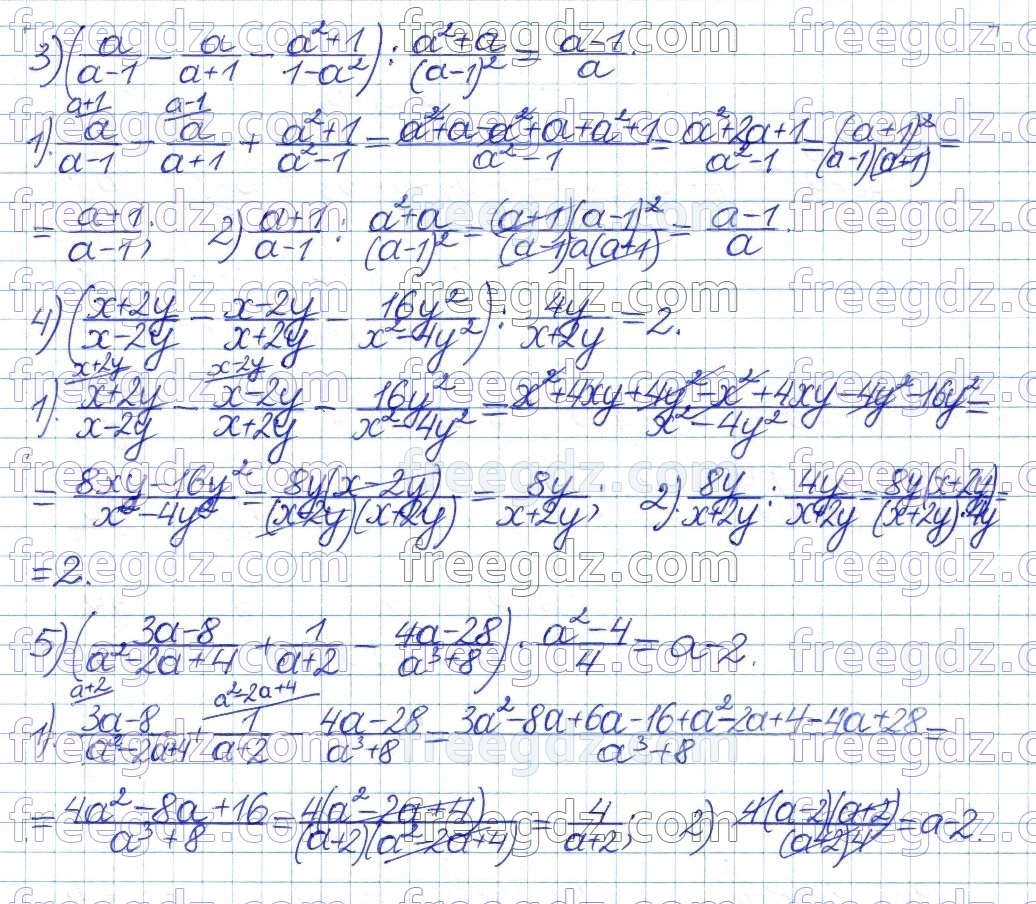 3) (a/(a-1) - a/(a+1) - (a²+1)/(1-a²)) : (a²+a)/(a-1)² = (a-1)/a.
a+1 a-1
1). a/(a-1) - a/(a+1) + (a²+1)/(a²-1) = (a²+a-a²+a+a²+1)/(a²-1) = (a²+2a+1)/(a²-1) = (a+1)²/((a-1)(a+1)) =
= (a+1)/(a-1); 2) (a+1)/(a-1) : (a²+a)/(a-1)² = ((a+1)(a-1)²)/((a-1)a(a+1)) = (a-1)/a.
4) ((x+2y)/(x-2y) - (x-2y)/(x+2y) - 16y²/(x²-4y²)) : 4y/(x+2y) = 2.
x+2y x-2y
1). (x+2y)/(x-2y) - (x-2y)/(x+2y) - 16y²/(x²-4y²) = (x²+4xy+4y²-x²+4xy-4y²-16y²)/(x²-4y²) =
= (8xy-16y²)/(x²-4y²) = 8y(x-2y)/((x-2y)(x+2y)) = 8y/(x+2y); 2). 8y/(x+2y) : 4y/(x+2y) = 8y(x+2y)/((x+2y)·4y) =
= 2.
5) ((3a-8)/(a²-2a+4) + 1/(a+2) - (4a-28)/(a³+8)) · (a²-4)/4 = a-2.
a+2 a²-2a+4
1). (3a-8)/(a²-2a+4) + 1/(a+2) - (4a-28)/(a³+8) = (3a²-8a+6a-16+a²-2a+4-4a+28)/(a³+8) =
= (4a²-8a+16)/(a³+8) = 4(a²-2a+4)/((a+2)(a²-2a+4)) = 4/(a+2); 2) 4(a-2)(a+2)/((a+2)4) = a-2.
freegdz.com